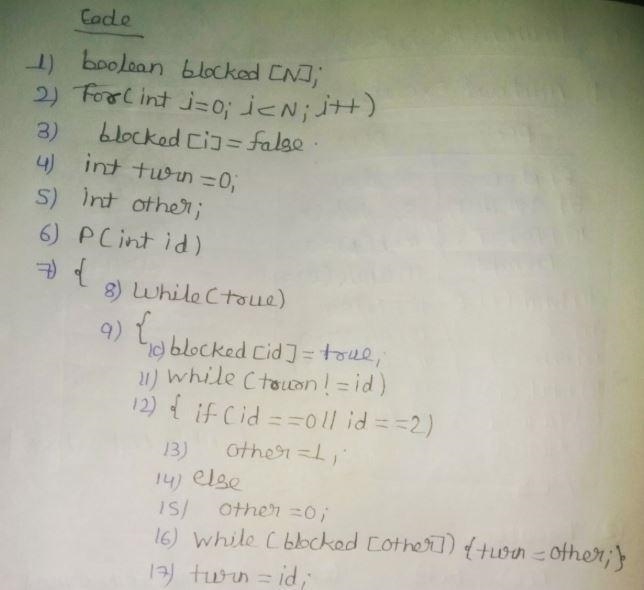 Code
1) boolean blocked [N];
2) For(int i=0; i<N; i++)
3) blocked [i] = false.
4) int turn = 0;
5) int other;
6) P(int id)
7) {
8) While(true)
9) {
10) blocked [id] = true;
11) while (turn != id)
12) { if (id == 0 || id == 2)
13) other = 1;
14) else
15) other = 0;
16) while (blocked [other]) {turn = other;}
17) turn = id;